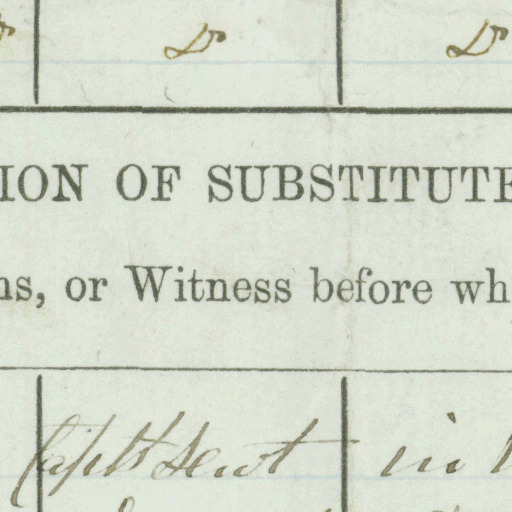 Do Do
ION OF SUBSTITUTE
ns, or Witness before wh
Capt Sewt in